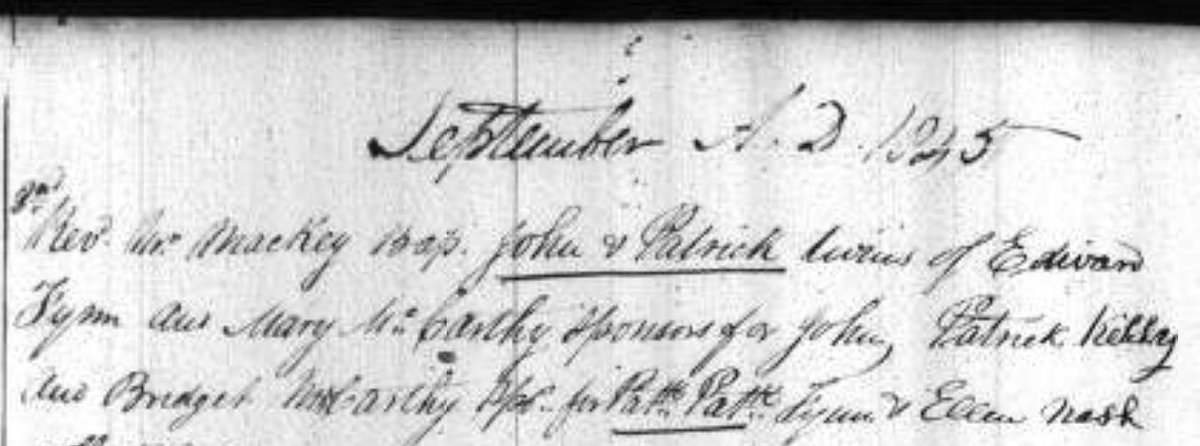 September A. D. 1845
2nd
Revd. Mr. Mackey Bap. John & Patrick twins of Edward
Fynn and Mary Mc. Carthy Sponsors for John, Patrick Kelly
and Bridget McCarthy Spr. for Patk. Patk. Fynn & Ellen Nash